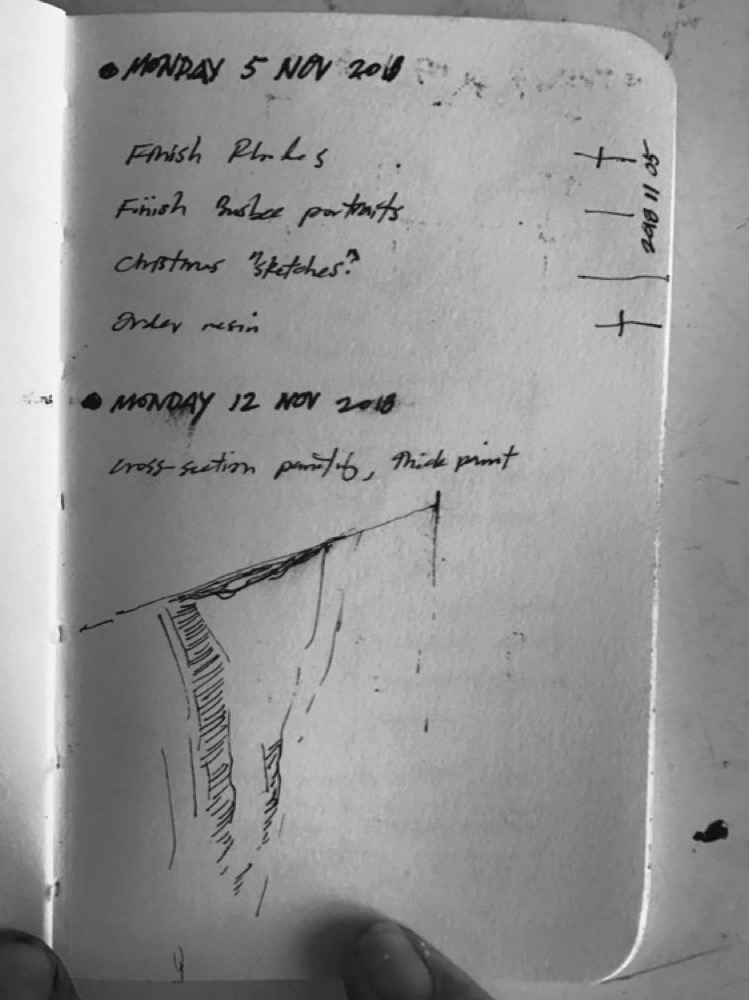 • MONDAY 5 NOV 2018
Finish Rhodes
Finish Busbee portraits
Christmas "sketches?"
Order resin
2018 11 05
• MONDAY 12 NOV 2018
cross-section painting, thick paint